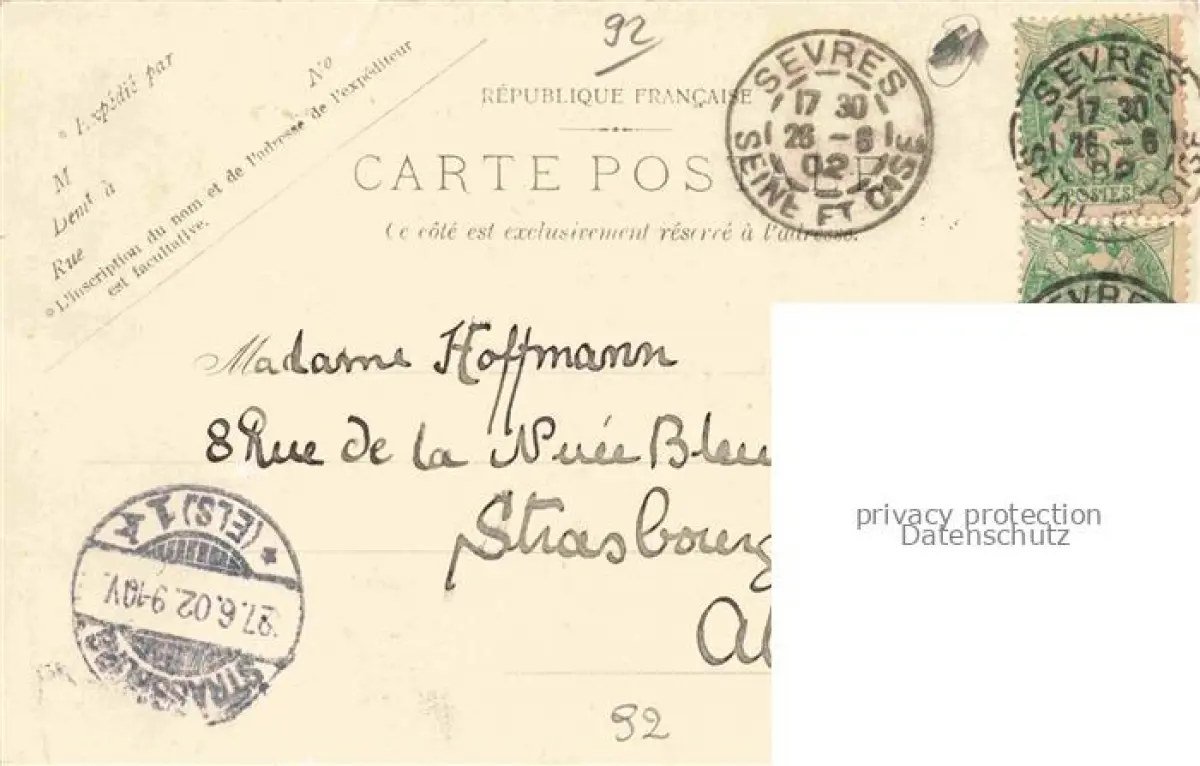 92
* Expédié par
M
Demt à
Rue No
* L'inscription du nom et de l'adresse de l'expéditeur
est facultative.
RÉPUBLIQUE FRANÇAISE
CARTE POSTALE
Ce côté est exclusivement réservé à l'adresse.
SEVRES
17 30
26 - 6
02
SEINE ET OISE
SEVRES
17 30
26 - 6
02
SEINE ET OISE
POSTES
SEVRES
Madame Hoffmann
8 Rue de la Nuée Bleu
Strasbourg
Al
(ELS) 1 A
27.6.02.9-10V.
STRASSB
92
privacy protection
Datenschutz